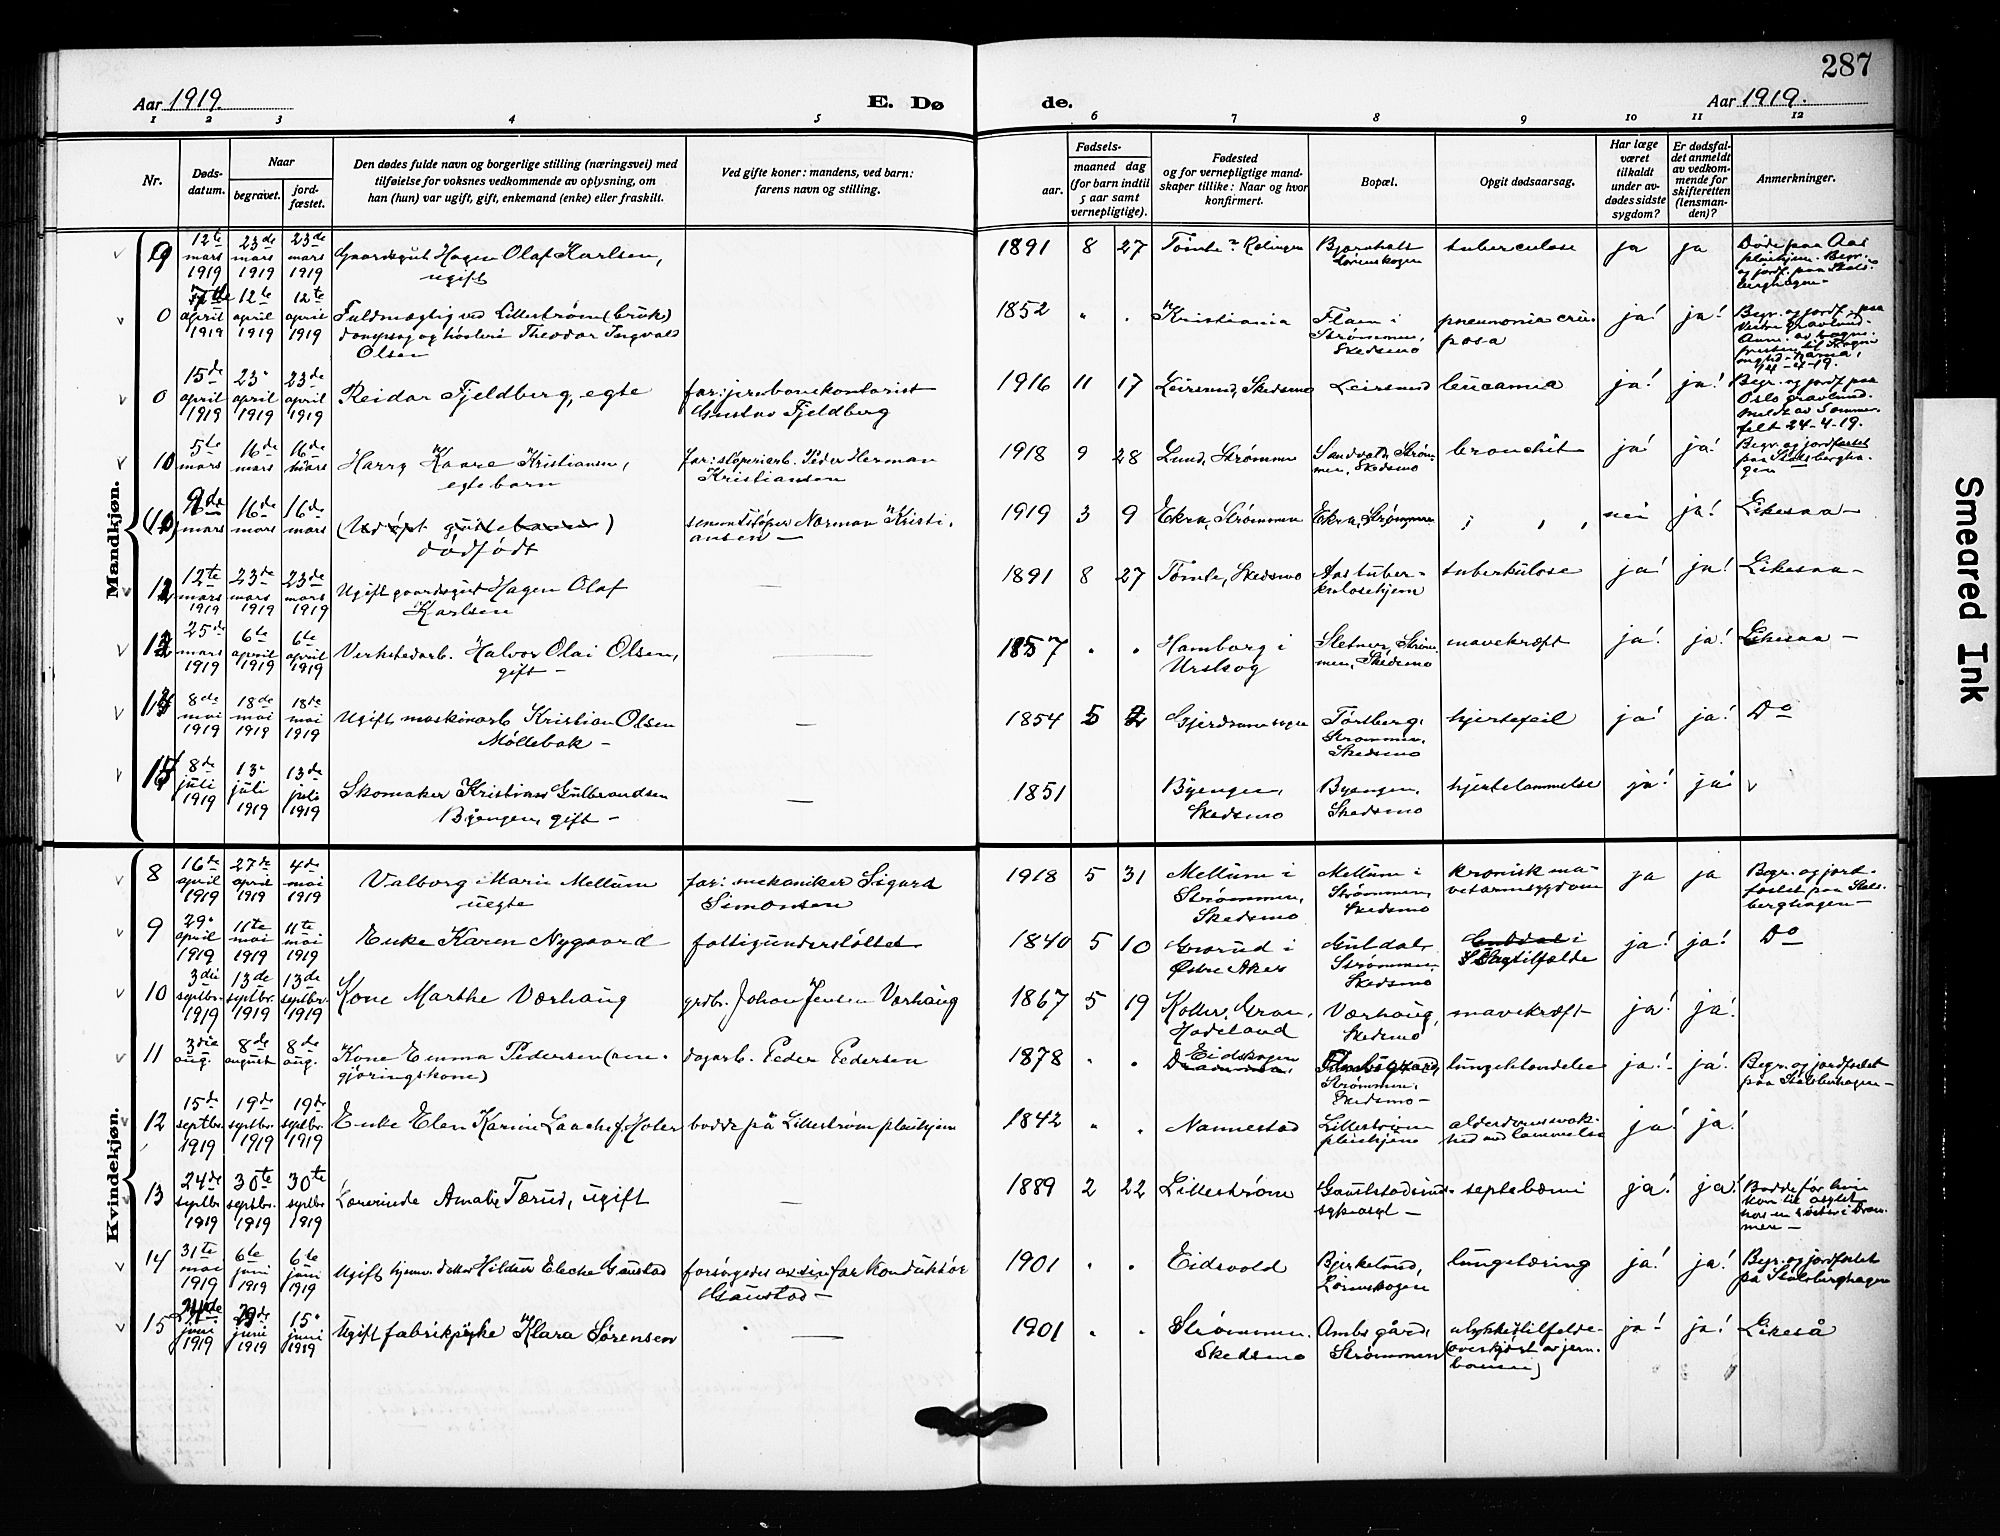 287
Aar 1919.
E. Dø
de.
Aar 1919.
1 2 3 4 5 6 7 8 9 10 11 12
Nr.
Døds-
datum.
Naar
begravet.
jord-
fæstet.
Den dødes fulde navn og borgerlige stilling (næringsvei) med
tilføielse for voksnes vedkommende av oplysning, om
han (hun) var ugift, gift, enkemand (enke) eller fraskilt.
Ved gifte koner: mandens, ved barn:
farens navn og stilling.
Fødsels-
aar.
maaned dag
(for barn indtil
5 aar samt
vernepligtige).
Fødested
og for vernepligtige mand-
skaper tillike: Naar og hvor
konfirmert.
Bopæl.
Opgit dødsaarsag.
Har læge
været
tilkaldt
under av-
dødes sidste
sygdom?
Er dødsfal-
det anmeldt
av vedkom-
mende for
skifteretten
(lensman-
den)?
Anmerkninger.
Mandkjøn.
9 12te mars 1919 23de mars 1919 23de mars 1919
Gaardsgut Hagen Olaf Karlsen,
ugift
1891 8 27 Tomte Rælingen
Bjørnholt
Lørenskogen
tuberculose ja ja
Døde paa Aas
pleiehjem. Begr.
og jordf. paa Stals-
berghagen
0 april 1919 12te april 1919 12te april 1919
Fuldmægtig ved Lillestrøm (bruk)
dampsag og høvleri Theodor Ingvald
Olsen
1852 " " Kristiania
Flaen i
Strømmen,
Skedsmo
pneumonia cru-
posa
ja! ja!
Begr. og jordf. paa
Vestre gravlund.
0 15de april 1919 23' april 1919 23de april 1919
Reidar Fjeldberg, egte
far: jernbanekontorist
Gustav Fjeldberg
1916 11 17 Leirsund, Skedsmo Leirsund leucæmia ja! ja!
Begr. og jordf. paa
Oslo gravlund.
Meldt av Sommer-
felt 24-4-19.
10 5te mars 16de mars 16de mars
Harry Kaare Kristiansen,
egte barn
far: støperiarb. Peder Herman
Kristiansen
1918 9 28 Lund, Strømmen
Sandvold, Strøm-
men, Skedsmo
bronchit ja! ja!
Begr. og jordfæstet
paa Stalsbergha-
gen
9de mars 16de mars 16de mars
dødfødt
Norman Kristi-
ansen
1919 3 9 Ekra, Strømmen Ekra, Strømmen nei ja! Likesaa
12 12te mars 1919 23de mars 1919 23de mars 1919
Ugift gaardsgut Hagen Olaf
Karlsen
1891 8 27 Tomte, Skedsmo
Aas tuber-
kulosehjem
tuberkulose ja! ja! Likesaa
25de mars 1919 6te april 1919 6te april 1919
Verkstedarb. Halvor Olai Olsen,
gift
1857 " "
Hamborg i
Urskog
Sletner, Strøm-
men, Skedsmo
mavekræft ja! ja! Likesaa
8de mai 1919 18de mai 1919 18de mai 1919
Ugift maskinarb Kristian Olsen
Møllebak
1854 5 2
Tørtberg,
Strømmen,
Skedsmo
hjertefeil ja! ja! Do
15 8de juli 1919 13' juli 1919 13de juli 1919
Skomaker Kristian Gulbrandsen
Byengen, gift
1851
Byengen,
Skedsmo
Byengen,
Skedsmo
hjertelammelse ja! ja!
Kvindekjøn.
8 16de april 1919 27de april 1919 4de mai 1919
Valborg Marie Mellum
uegte
far: mekaniker Sigurd
Simonsen
1918 5 31
Mellum i
Strømmen,
Skedsmo
Mellum i
Strømmen,
Skedsmo
kronisk ma-
vetarmsygdom
ja ja
Begr. og jord-
fæstet paa Stals-
berghagen
9 29' april 1919 11te mai 1919 11te mai 1919
Enke Karen Nygaard
fattigunderstøttet
1840 5 10
Grorud i
Østre Aker
Guldal,
Strømmen,
Skedsmo
Slagtilfælde
ja! ja! Do
10 3die septbr. 1919 13de septbr. 1919 13de septbr. 1919
Kone Marthe Værhaug
grdbr. Johan Jensen Værhaug
1867 5 19
Koller, Gran,
Hadeland
Værhaug,
Skedsmo
mavekræft ja! ja!
11 3die aug. 8de august 8de aug.
Kone Emma Pedersen (ren-
gjøringskone)
dagarb. Peder Pedersen
1878 " "
Eidskogen
Drammen,
Strømmen,
Skedsmo
lungeblændelse ja! ja!
Begr. og jordfæstet
paa Stalsberghagen
12 15de septbr. 1919 19de septbr. 1919 19de septbr. 1919
Enke Elen Karine Laache f. Holer
bodde på Lillestrøm pleiehjem
1842 " " Nannestad
Lillestrøm
pleiehjem
alderdomssvak-
hed med lammelse
ja! ja!
13 24de septbr. 1919 30te septbr. 1919 30te septbr. 1919
Lærerinde Amalie Tærud, ugift
1889 2 22 Lillestrøm
Gaustadsind-
sykeasyl
septebæmi ja! ja!
Bodde før hun
kom til asylet
hos en søster i Dram-
men
14 31te mai 1919 6te juni 1919 6te juni 1919
Ugift hjemv. datter Hildur Elecka Gaustad
forsørgedes av sin far konduktør
Gaustad
1901 " " Eidsvold
Bjerkelund,
Lørenskogen
lungetæring ja! ja!
Begr. og jordfæstet
på Stalsberghagen
15 juni 1919 29de juni 1919 15' juni 1919
Ugift fabrikpike Klara Sørensen
1901 " "
Strømmen,
Skedsmo
Ambs gård,
Strømmen
ulykkestilfelde
(overkjørt av jern-
banen)
ja! ja! Likeså
Smeared Ink